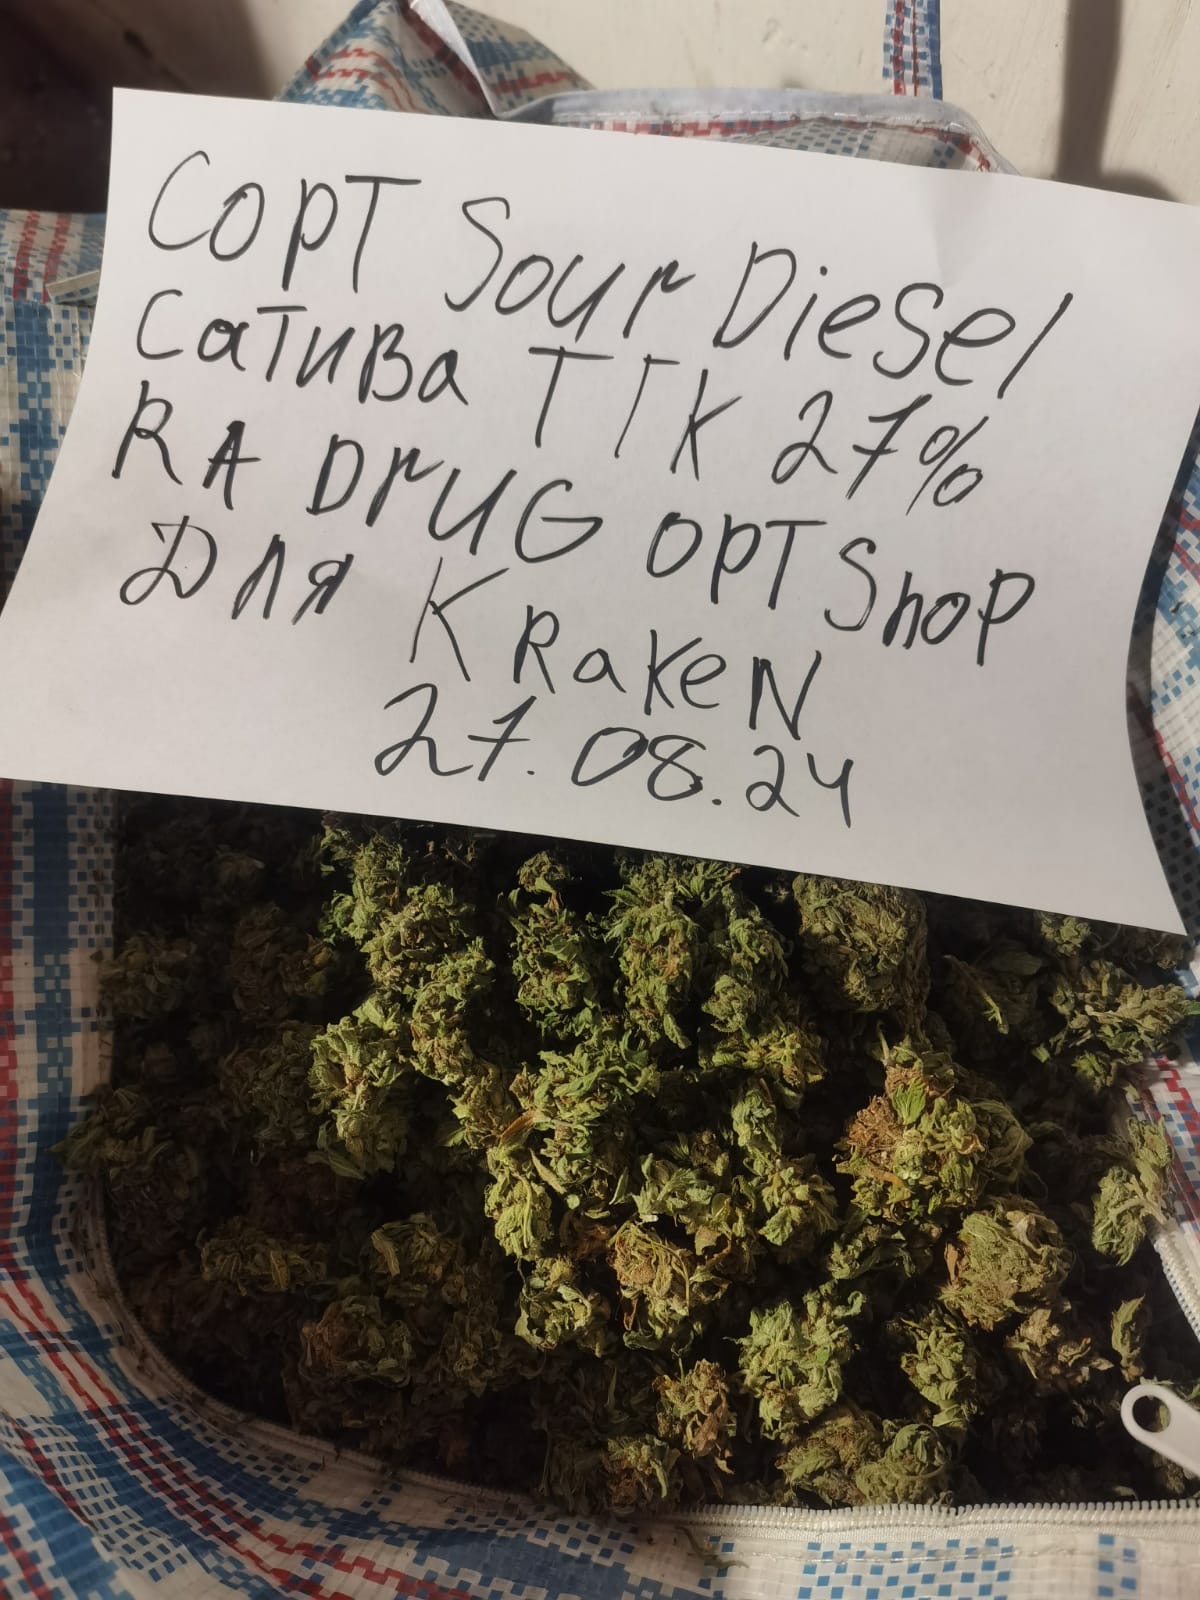 Сорт Sour Diesel
Сатива ТГК 27%
RA DruG OPT Shop
Для KRaKeN
27.08.24